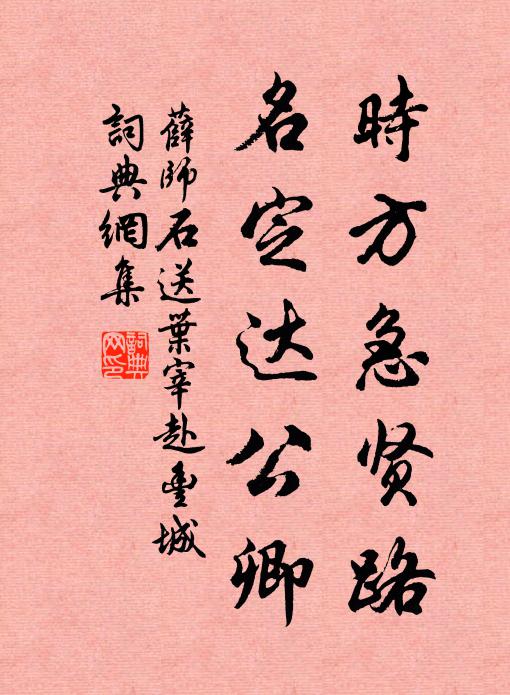 時方急贤路
名定达公卿
薛師石送葉宰赴豊城
詞典網集
詞典网印